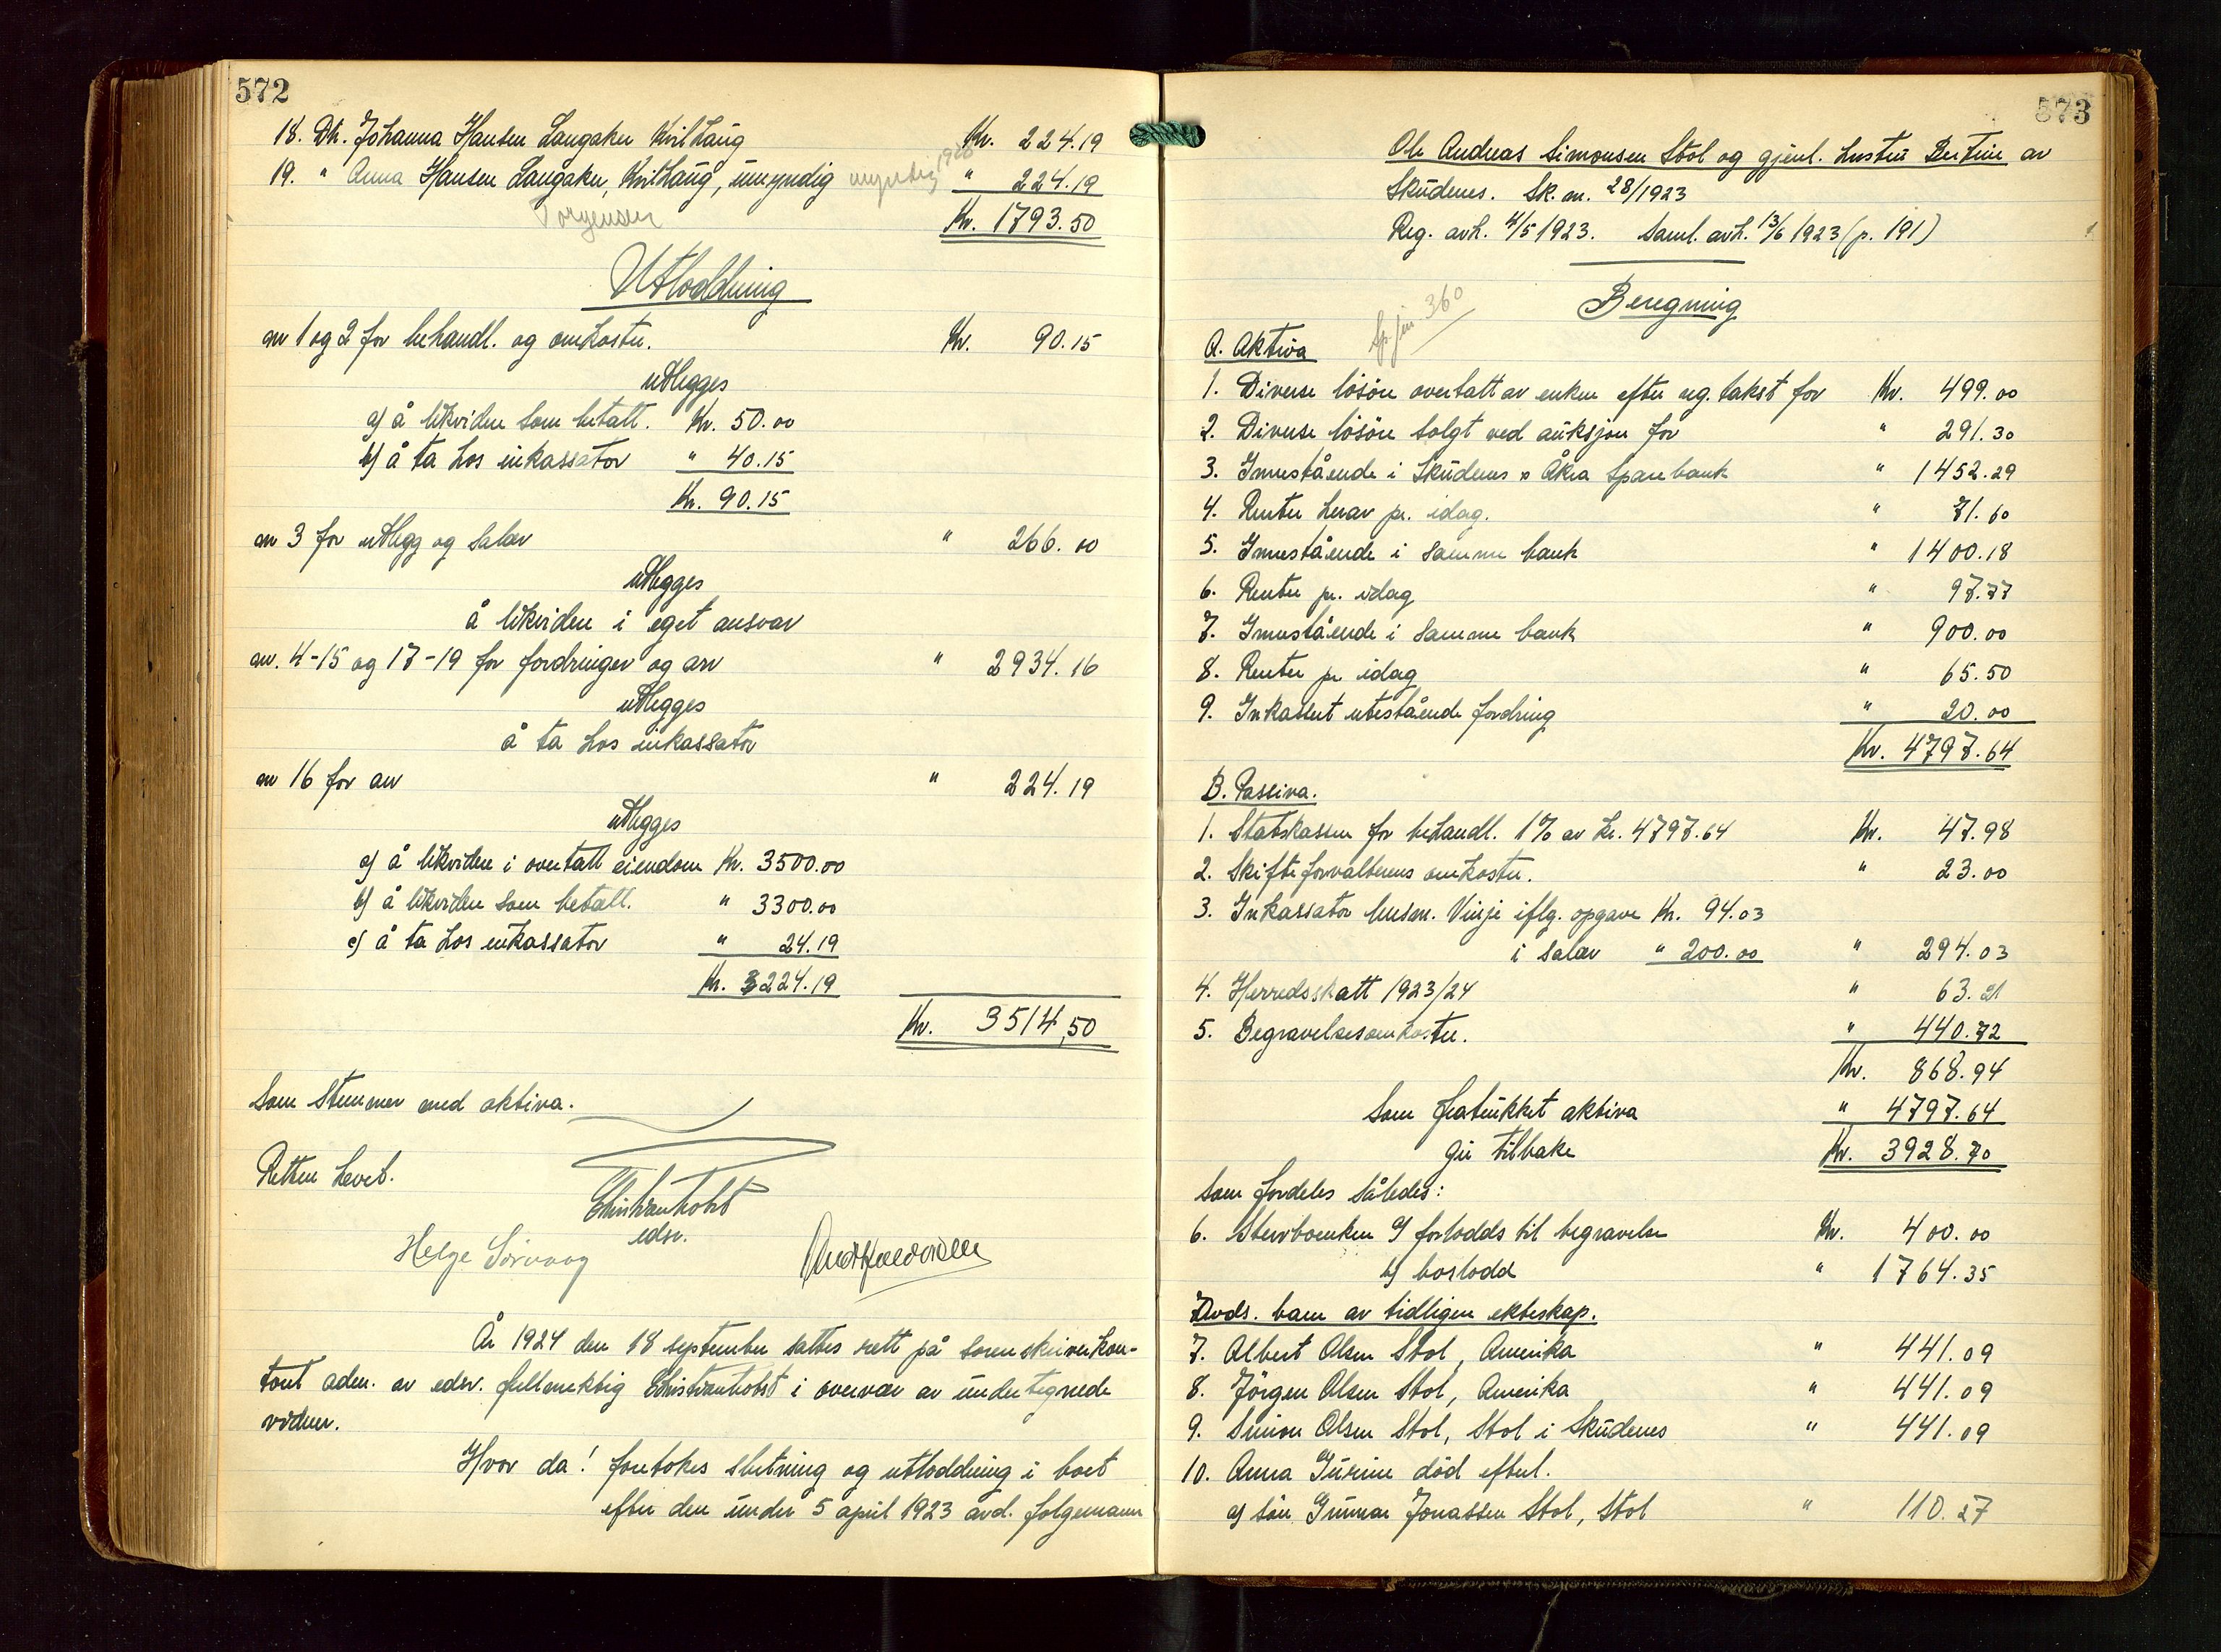 572
18. Dtr. Johanna Hansen Langaker Kvilhaug Kr. 224.19
19. " Anna Hansen Langaker, Kvilhaug, umyndig myndig 1926 " 224.19
Torgensen Kr. 1793.50
Utloddning
av 1 og 2 for behandl. og omkostn. Kr. 90.15
utlegges
a) å likviden som betalt. Kr. 50.00
b) å ta hos inkassator " 40.15
Kr. 90.15
av 3 for utlegg og salær " 266.00
utlegges
å likviden i eget ansvar
av. 4-15 og 17-19 for fordringer og arv " 2934.16
utlegges
å ta hos inkassator
av 16 for arv " 224.19
utlegges
a) å likviden i overtatt eiendom Kr. 3500.00
b) å likviden som betalt. " 3300.00
c) å ta hos inkassator " 24.19
Kr. 3224.19
Kr. 3514,50
Som stemmer med aktiva.
Retten hevet.
Christianholst
edsv.
Helge Sörvaag
År 1924 den 18 september sattes rett på sorenskriverkon-
toret adm. av edsv. fullmektig Christianholst i overvær av undertegnede
vidner.
Hvor da! foretokes slutning og utloddning i boet
efter den under 5 april 1923 avd. folgemann
573
Ole Andreas Simonsen Stol og gjenl. hustru Bertine av
Skudenes. Sk. m. 28/1923
Reg. avh. 4/5 1923. Saml. avh. 13/6 1923 (p. 191)
Beregning
360
A. Aktiva
1. Diverse lösöre overtatt av enken efter reg. takst for Kr. 499.00
2. Diverse lösöre solgt ved auksjon for " 291.30
3. Innestående i Skudenes & Åkra Sparebank " 1452.29
4. Renter herav pr. idag. " 71.60
5. Innestående i samme bank " 1400.18
6. Renter pr. idag " 97.77
7. Innestående i samme bank " 900.00
8. Renter pr. idag " 65.50
9. Inkassert utestående fordring " 20.00
Kr. 4797.64
B. Passiva.
1. Statskassen for behandl. 1% av kr. 4797.64 Kr. 47.98
2. Skifteforvalterens omkostn. " 23.00
3. Inkassator lensm. Vinje iflg. opgave Kr. 94.03
i salær " 200.00 " 294.03
4. Herredsskatt 1923/24 " 63.21
5. Begravelsesomkostn. " 440.72
Kr. 868.94
Som fratrukket aktiva " 4797.64
gir tilbake Kr. 3928.70
som fordeles således:
6. Stervboenken a) forlodds til begravelse Kr. 400.00
b) boslodd " 1764.35
Avds. barn av tidligere ekteskap.
7. Albert Olsen Stol, Amerika " 441.09
8. Jörgen Olsen Stol, Amerika " 441.09
9. Simon Olsen Stol, Stol i Skudenes " 441.09
10. Anna Gurine död efterl.
a) sön Gunnar Jonassen Stol, Stol " 110.27